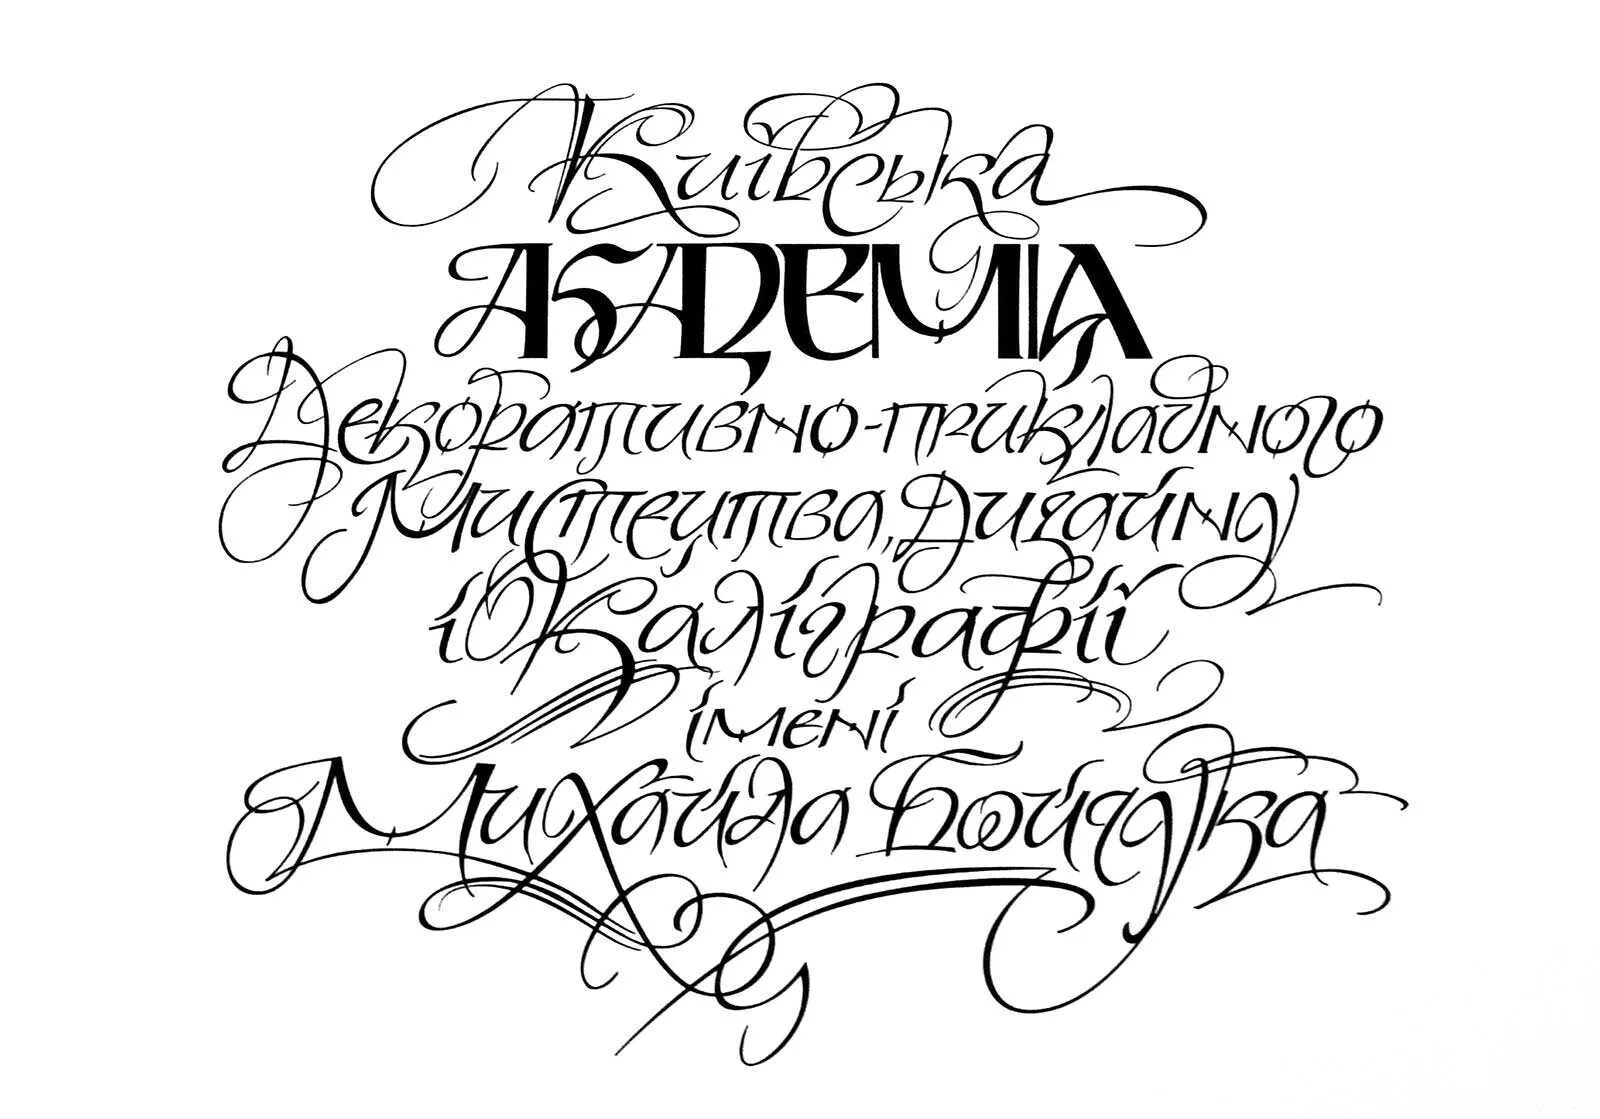 Київська
АКАДЕМІЯ
Декоративно-прикладного
Мистецтва, Дизайну
і Каліграфії
імені
Михайла Бойчука